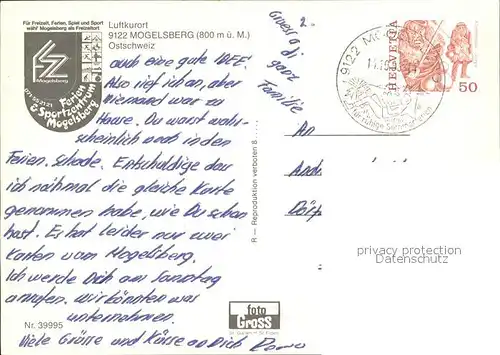 Für Freizeit, Ferien, Spiel und Sport
wähl' Mogelsberg als Freizeitort
Mogelsberg
071 55 21 21
Ferien
& Sportzentrum
Mogelsberg
Luftkurort
9122 MOGELSBERG (800 m ü. M.)
Ostschweiz
auch eine gute IDEE!
Also rief ich an, aber
Niemand war zu
Hause. Du warst wahr-
scheinlich noch in den
Ferien. Schade. Entschuldige das
ich nähmal die gleiche Karte
genommen habe, wie Du schon
hast. Es hat leider nur zwei
Karten vom Mogelsberg.
Ich werde Dich am Samstag
anrufen. Wir könnten was
unternehmen.
Viele Grüsse und Küsse an Dich
Nr. 39995
R — Reproduktion verboten 8
foto
Gross
St. Gallen
2.
Gruess a
di ganz
Familie
9122
HELVETIA
50
An
Andr
Dörf
privacy protection
Datenschutz